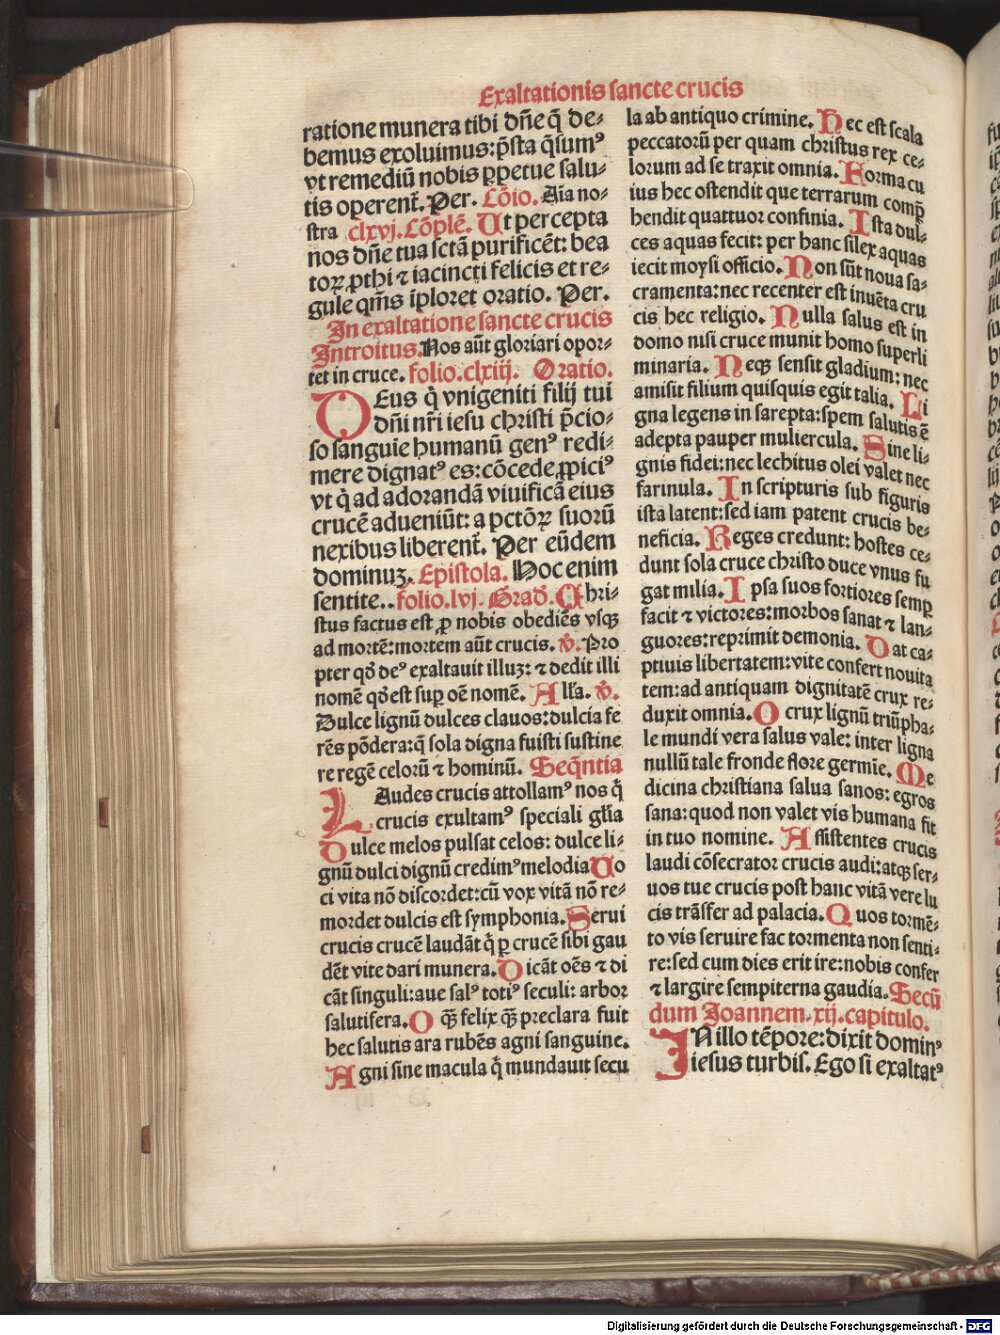 Exaltationis sancte crucis
ratione munera tibi dñe q̃ de⸗
bemus exoluimus: p̃sta q̃sumꝰ
vt remediũ nobis ꝑpetue salu⸗
tis operent᷑. Per. Cõio. Aĩa no⸗
stra clxvj. Cõplẽ. Ut percepta
nos dñe tua sctã purificẽt: bea
toꝝ ꝓthi ⁊ iacincti felicis et re⸗
gule qm̃s iploret oratio. Per.
In exaltatione sancte crucis
Introitus. Nos aũt gloriari opor⸗
tet in cruce. folio. clxiij. Oratio.
DEus q̇ vnigeniti filij tui
dñi nr̃i iesu christi p̃cio⸗
so sanguie humanũ genꝰ redi⸗
mere dignatꝰ es: cõcede ꝓpiciꝰ
vt q̇ ad adorandã viuificã eius
crucẽ adueniũt: a pctõꝝ suorũ
nexibus liberent᷑. Per eũdem
dominuꝫ. Epistola. Hoc enim
sentite.. folio. lvj. Grad̃. Chri⸗
stus factus est ꝓ nobis obediẽs vsqꝫ
ad mortẽ: mortem aũt crucis. ℣. Pro
pter qđ deꝰ exaltauit illuꝫ: ⁊ dedit illi
nomẽ qđ est suꝑ oẽ nomẽ. Alľa. ℣.
Dulce lignũ dulces clauos: dulcia fe
rẽs põdera: q̃ sola digna fuisti sustine
re regẽ celorũ ⁊ hominũ. Seq̃ntia
LAudes crucis attollamꝰ nos q̇
crucis exultamꝰ speciali glĩa
Dulce melos pulsat celos: dulce li⸗
gnũ dulci dignũ credimꝰ melodia Uo
ci vita nõ discordet: cũ vox vitã nõ re⸗
mordet dulcis est symphonia. Serui
crucis crucẽ laudãt q̇ ꝑ crucẽ sibi gau
dẽt vite dari munera. Dicãt oẽs ⁊ di
cãt singuli: aue salꝰ totiꝰ seculi: arbor
salutifera. O qꝫ̃ felix qꝫ̃ preclara fuit
hec salutis ara rubẽs agni sanguine.
Agni sine macula q̇ mundauit secu
la ab antiquo crimine. Hec est scala
peccatorũ per quam christus rex ce⸗
lorum ad se traxit omnia. Forma cu
ius hec ostendit que terrarum comp̱
hendit quattuor confinia. Ista dul⸗
ces aquas fecit: per hanc silex aquas
iecit moysi officio. Non sũt noua sa⸗
cramenta: nec recenter est inuẽta cru
cis hec religio. Nulla salus est in
domo nisi cruce munit homo superli
minaria. Neqꝫ sensit gladium: nec
amisit filium quisquis egit talia. Li
gna legens in sarepta: spem salutis ẽ
adepta pauper muliercula. Sine li⸗
gnis fidei: nec lechitus olei valet nec
farinula. In scripturis sub figuris
ista latent: sed iam patent crucis be⸗
neficia. Reges credunt: hostes ce⸗
dunt sola cruce christo duce vnus fu
gat milia. Ipsa suos fortiores semꝑ
facit ⁊ victores: morbos sanat ⁊ lan⸗
guores: reprimit demonia. Dat ca⸗
ptiuis libertatem: vite confert nouita
tem: ad antiquam dignitatẽ crux re⸗
duxit omnia. O crux lignũ triũpha⸗
le mundi vera salus vale: inter ligna
nullũ tale fronde flore germĩe. Me
dicina christiana salua sanos: egros
sana: quod non valet vis humana fit
in tuo nomine. Assistentes crucis
laudi cõsecrator crucis audi: atqꝫ ser⸗
uos tue crucis post hanc vitã vere lu
cis trãsfer ad palacia. Quos tormẽ⸗
to vis seruire fac tormenta non senti⸗
re: sed cum dies erit ire: nobis confer
⁊ largire sempiterna gaudia. Secũ
dum Joannem. xij. capitulo.
IN illo tẽpore: dixit dominꝰ
iesus turbis. Ego si exaltatꝰ
Digitalisierung gefördert durch die Deutsche Forschungsgemeinschaft - DFG